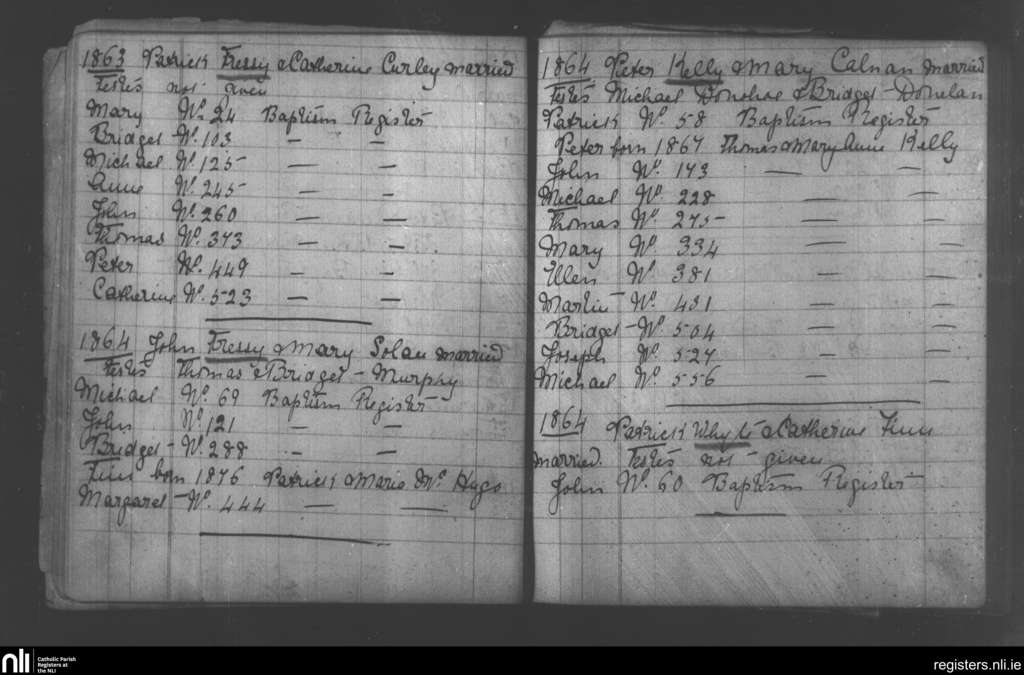 1863 Patrick Fressy & Catherine Curley married
Testes not given
Mary No. 24 Baptism Register
Bridget No. 103 — —
Michael No. 125 — —
Anne No. 245 — —
John No. 260 — —
Thomas No. 373 — —
Peter No. 449 — —
Catherine No. 523 — —
1864 John Fressy & Mary Solan married
Testes Thomas & Bridget Murphy
Michael No. 69 Baptism Register
John No. 121 — —
Bridget No. 288 — —
born 1876 Patrick & Marie Mc Hugo
Margaret No. 444 — —
1864 Peter Kelly & Mary Calnan married
Testes Michael Donohoe & Bridget Donelan
Patrick No. 58 Baptism Register
Peter born 1867 Thomas & Mary Anne Kelly
John No. 143 — —
Michael No. 228 — —
Thomas No. 275 — —
Mary No. 334 — —
Ellen No. 381 — —
Martin No. 431 — —
Bridget No. 504 — —
Joseph No. 527 — —
Michael No. 556 — —
1864 Patrick Whyte & Catherine Finn
married. Testes not given
John No. 60 Baptism Register
nli Catholic Parish
Registers at
the NLI
registers.nli.ie